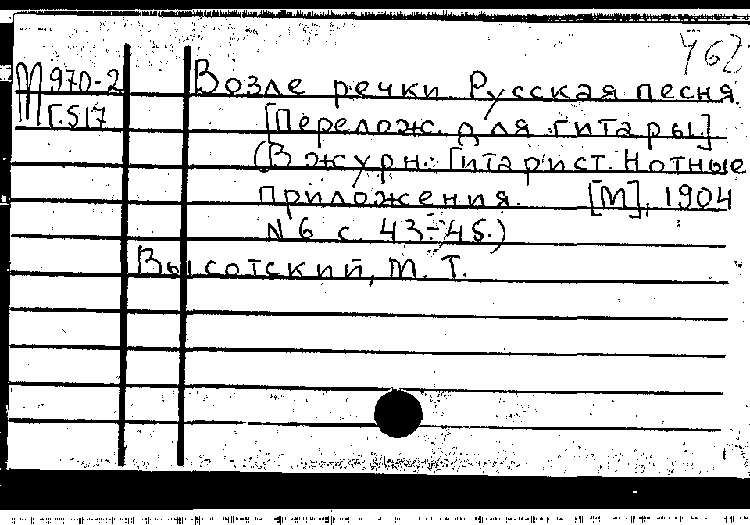 462
М 970-2 Возле речки. Русская песня.
Г.517 [Перелож. для гитары.]
(В журн.: Гитарист. Нотные
приложения. [М], 1904
N 6 с. 43-45.)
Высотский, М. Т.